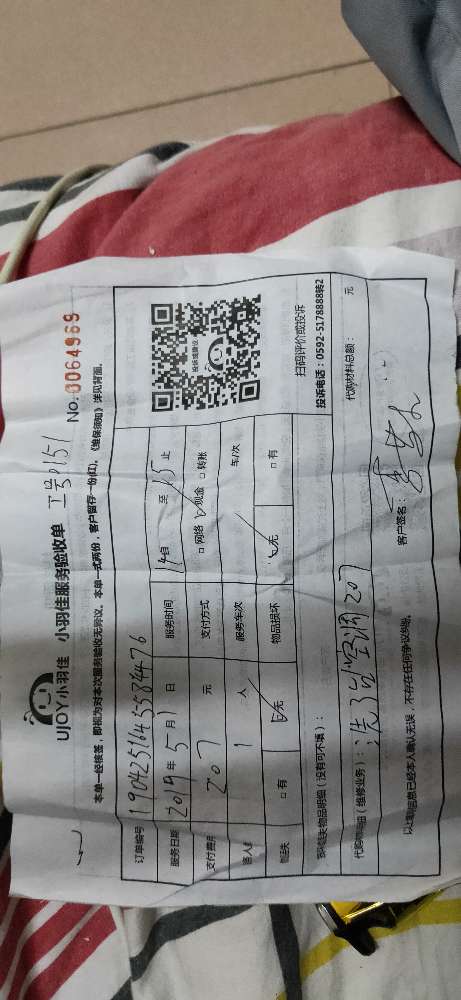 UJOY小羽佳 小羽佳服务验收单 工号9151 No.0064969
本单一经核签，即视为对本次服务验收无异议。本单一式两份，客户留存一份(红)。《维保须知》详见背面。
订单编号 19042510455584476
服务日期 2019年5月1日 服务时间 14自 至 15止
支付费用 207 元 支付方式 □网络 ☑现金 □转账
1 人 服务车次 车/次
□有 ☑无 物品损坏 ☑无 □有
投诉或建议
扫码评价或投诉
投诉电话：0592-5178888转2
物品明细（没有可不填）：
（维修业务）：洗3台空调 207 代购材料总额： 元
以上信息已经本人确认无误，不存在任何争议纠纷。 客户签名：